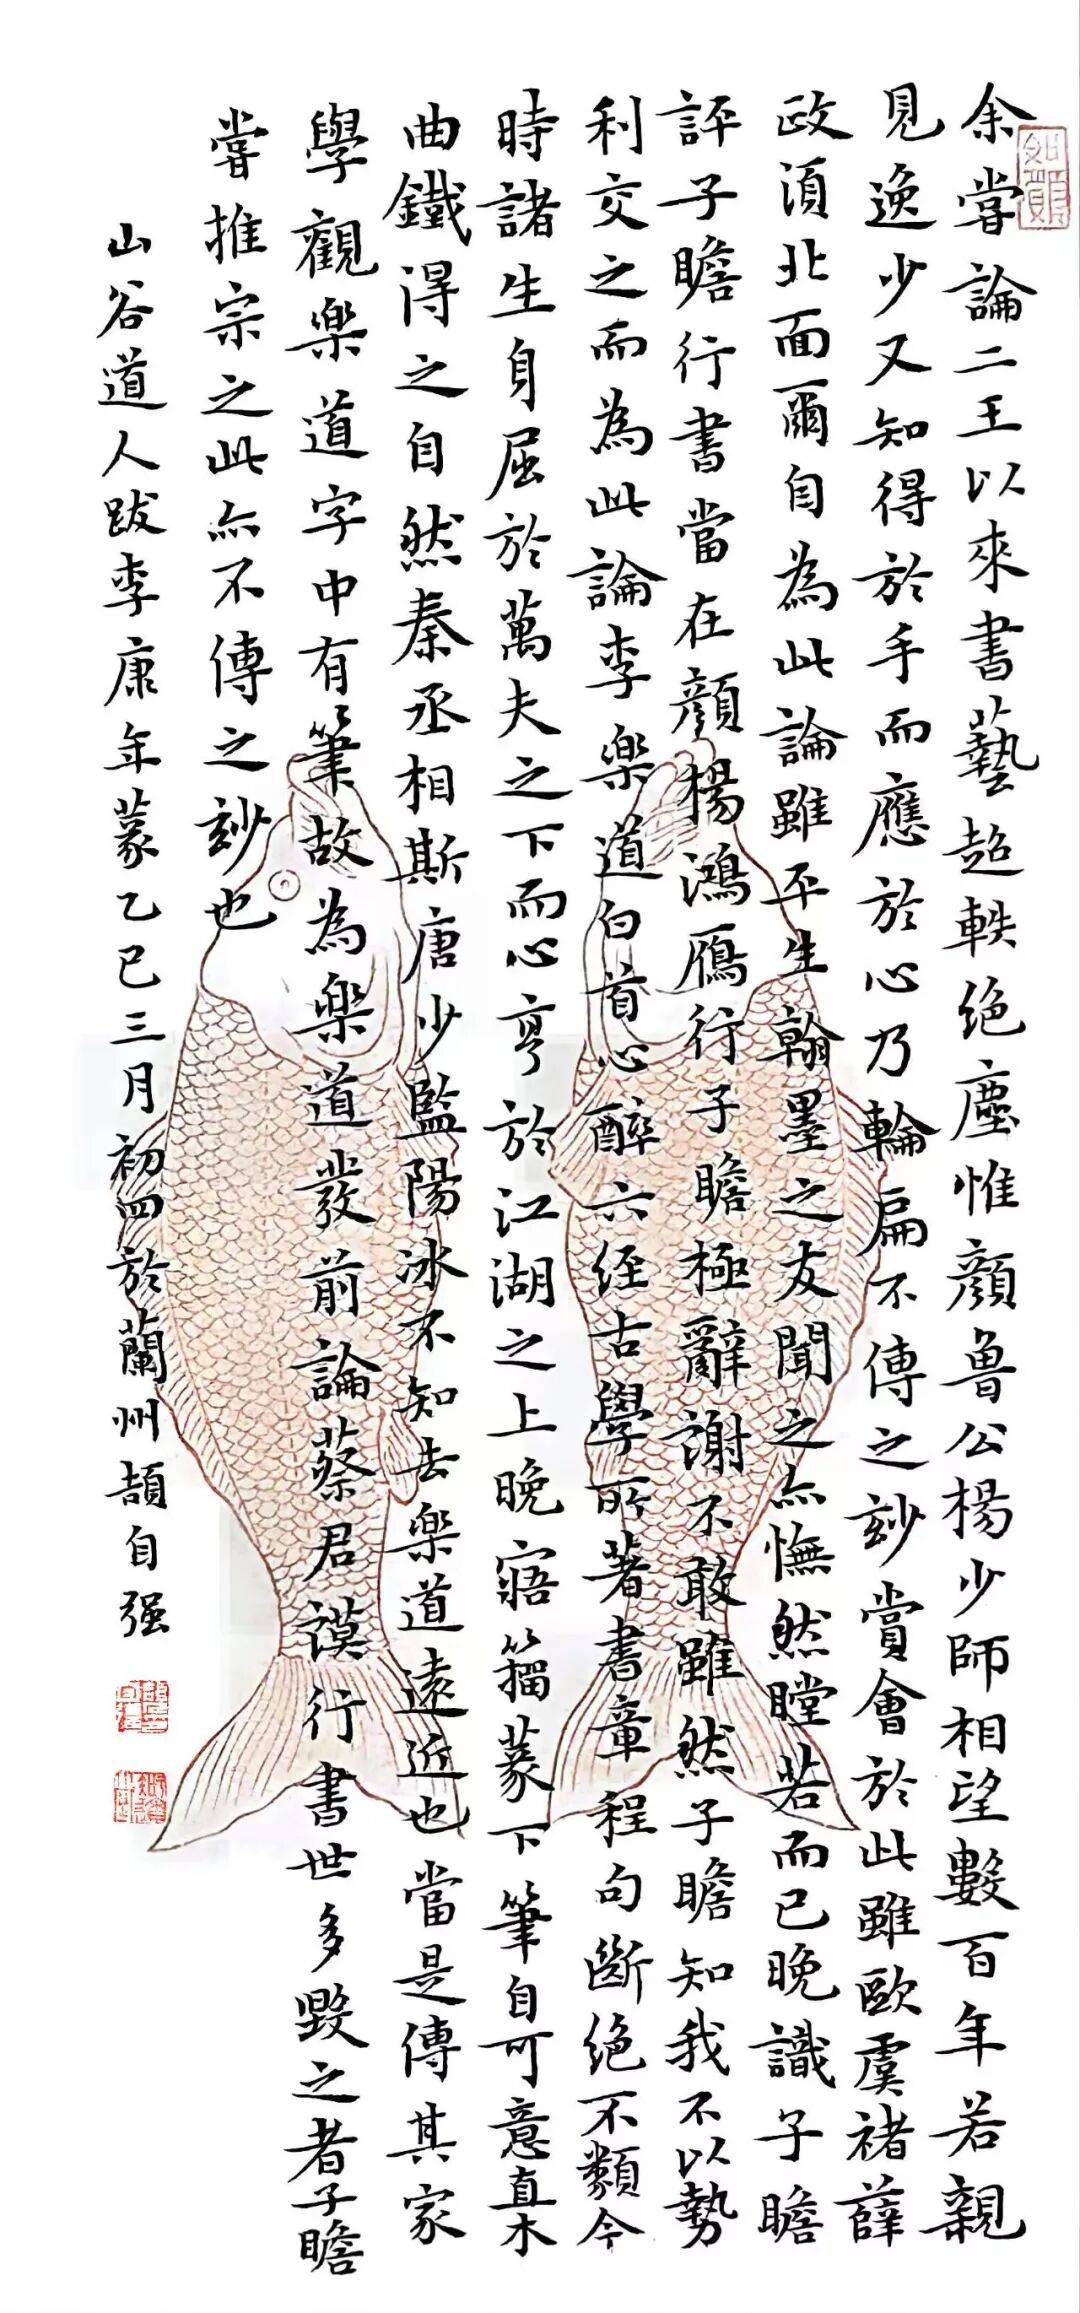 余嘗論二王以來書藝超軼绝塵惟顔魯公楊少師相望數百年若親
見逸少又知得於手而應於心乃輪扁不傳之玅賞會於此雖歐虞褚薛
政湏北面爾自為此論雖平生翰墨之友聞之亦憮然瞠若而已晚識子瞻
評子瞻行書當在顔楊鴻鴈行子瞻極辭謝不敢雖然子瞻知我不以勢
利交之而為此論李樂道白首心醉六经古學所著書章程句斷绝不類今
時諸生身屈於萬夫之下而心亨於江湖之上晚寤籀篆下筆自可意直木
曲鐵得之自然秦丞相斯唐少監陽冰不知去樂道遠近也當是傳其家
學觀樂道字中有筆故為樂道發前論蔡君謨行書世多毀之者子瞻
嘗推宗之此亦不傳之玅也
山谷道人跋李康年篆乙巳三月初四於蘭州頡自强
如願